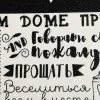 М ДОМЕ ПР
AND Говорить с
Пожалу
ПРОЩАТЬ
Веселиться